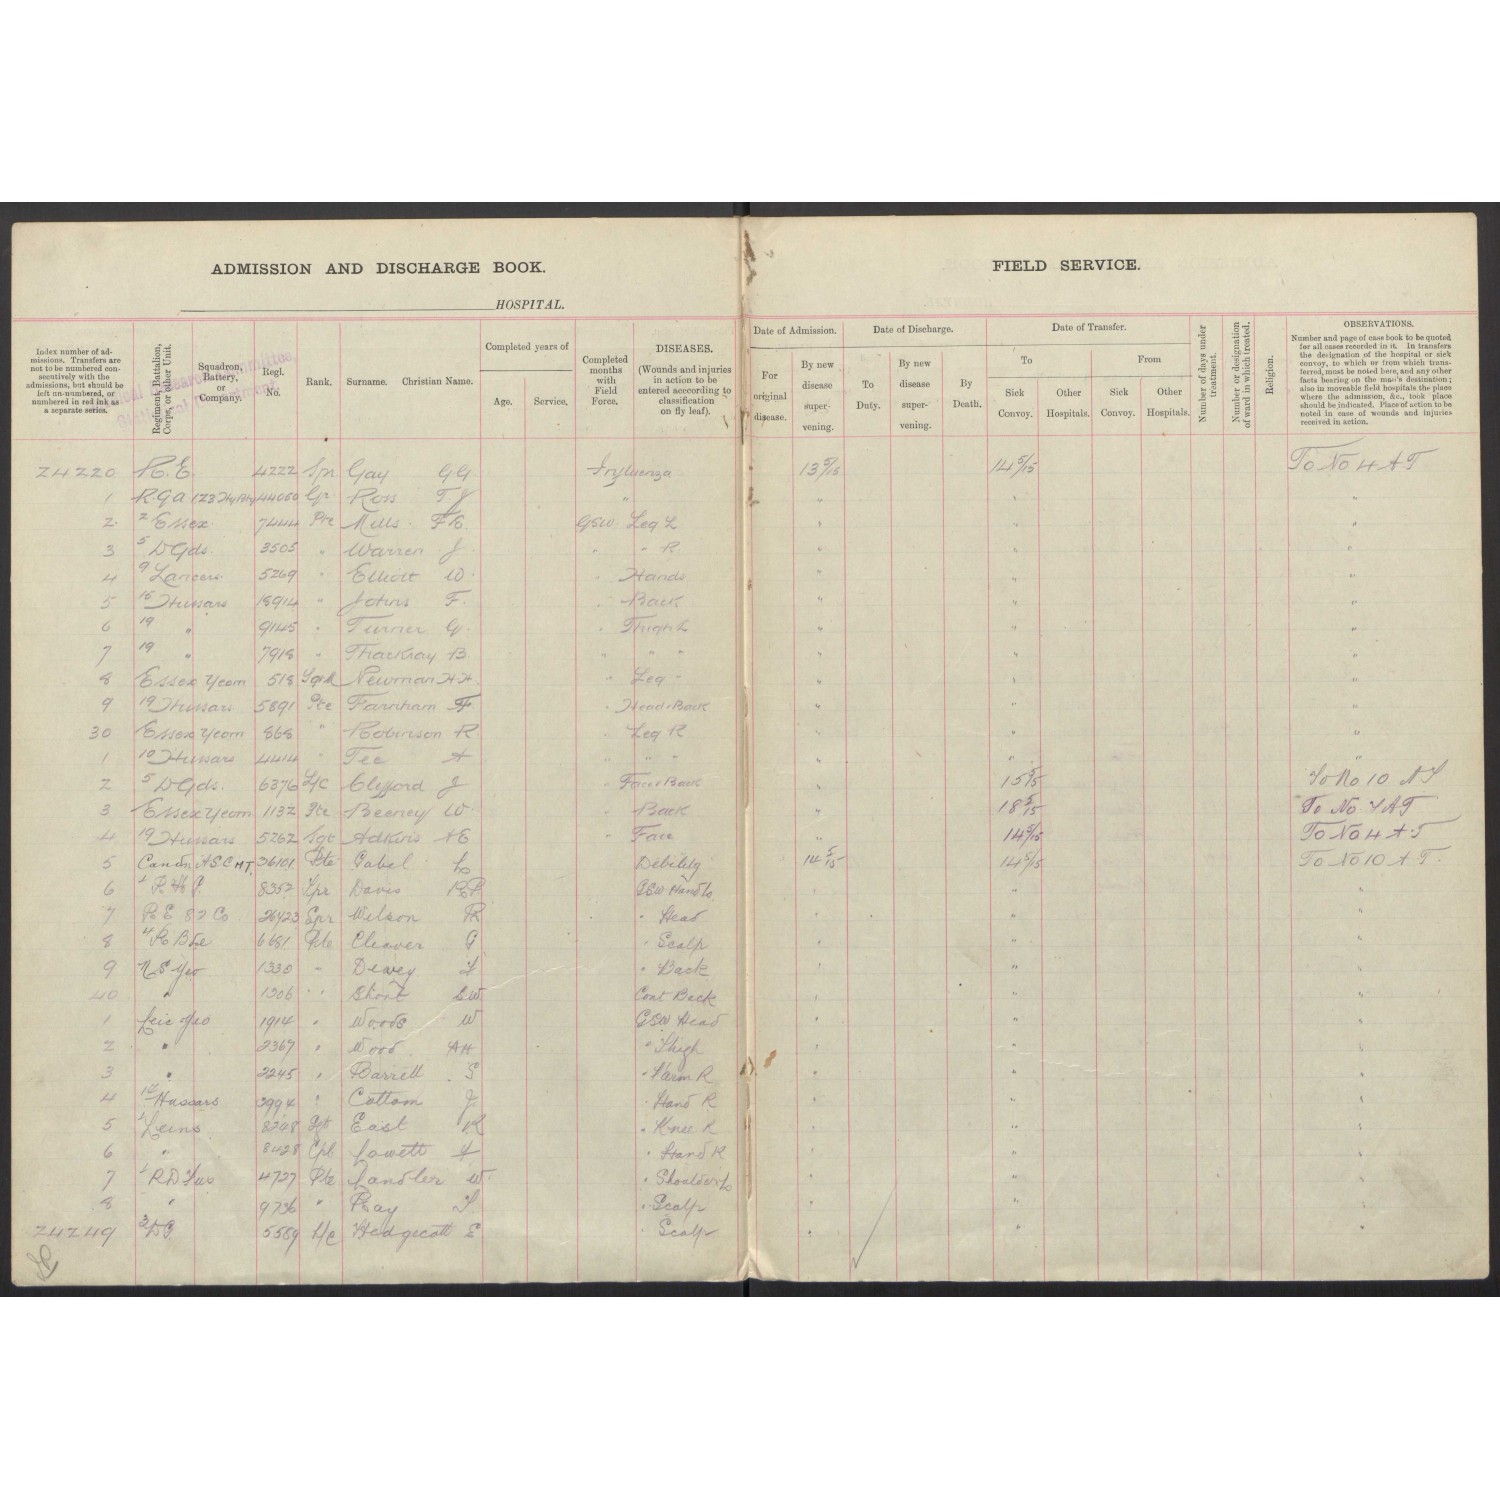 ADMISSION AND DISCHARGE BOOK.
FIELD SERVICE.
HOSPITAL.
Index number of admissions. Transfers are not to be numbered consecutively with the admissions, but should be left un-numbered, or numbered in red ink as a separate series.
Regiment, Battalion, Corps, or other Unit.
Squadron, Battery, or Company.
Regl. No.
Rank.
Surname. Christian Name.
Completed years of
Age. Service.
Completed months with Field Force.
DISEASES.
(Wounds and injuries in action to be entered acccording to classification on fly leaf).
Date of Admission.
For original disease.
By new disease supervening.
Date of Discharge.
To Duty.
By new disease supervening.
By Death.
Date of Transfer.
To
From
Sick Convoy.
Other Hospitals.
Sick Convoy.
Other Hospitals.
Number of days under treatment.
Number or designation of ward in which treated.
Religion.
OBSERVATIONS.
Number and page of case book to be quoted for all cases recorded in it. In transfers the designation of the hospital or sick convoy, to which or from which transferred, must be noted here, and any other facts bearing on the man's destination; also in moveable field hospitals the place where the admission, &c., took place should be indicated. Place of action to be noted in case of wounds and injuries received in action.
24220 R.E. 4222 Spr Gay G G Influenza 13 5/15 14 5/15 To No 4 A T
1 R.G.A 123 Hy Bty 44050 Gr Ross T J " " " "
2 2 Essex 7444 Pte Mills F E GSW Leg L " " "
3 5 D Gds. 3505 " Warren J " " R " " "
4 9 Lancers 5269 " Elliott W. " Hands " " "
5 15 Hussars 18914 " Johns F. " Back " " "
6 19 " 9145 " Turner G. " Thigh L " " "
7 19 " 7918 " Thackray B. " " " " " "
8 Essex Yeom 518 Newman H H " Leg " " " "
9 19 Hussars 5891 Pte Farnham F " Head & Back " " "
30 Essex Yeom 868 " Robinson R. " Leg R " " "
1 10 Hussars 4414 " Tee A " " " " " "
2 5 D Gds. 6376 L/C Clifford J " Face Back " 15 5/15 To No 10 A T
3 Essex Yeom 1132 Pte Beeney W. " Back " 18 5/15 To No 7 A T
4 19 Hussars 5262 Sgt Adkins A E " Face " 14 5/15 To No 4 A T
5 Canadn A S C H T. 36101 Pte Gabel L Debility 14 5/15 14 5/15 To No 10 A T.
6 8352 Davis R P GSW Hand L " " "
7 R E 87 Co. 26423 Spr Wilson R " Head " " "
8 4 R Bde 6681 Pte Cleaver G " Scalp " " "
9 N S Yeo 1330 " Dewey F " Back " " "
40 " 1306 " Short G W. Cont Back " " "
1 Leic Yeo 1914 " Woods W GSW Head " " "
2 " 2367 " Wood A H " Thigh " " "
3 " 2245 " Barrett S " Farm R " " "
4 Hussars 3994 " Cottom J " Hand R " " "
5 Leins 8248 Sgt East R " Knee R " " "
6 " 8428 Cpl Lowett F " Hand R " " "
7 1 R D Fus 4727 Pte Candler W. " Shoulder L " " "
8 " 9736 " Ray F " Scalp " " "
24249 3 DG 5589 L/C Hedgecott E " Scalp " " "